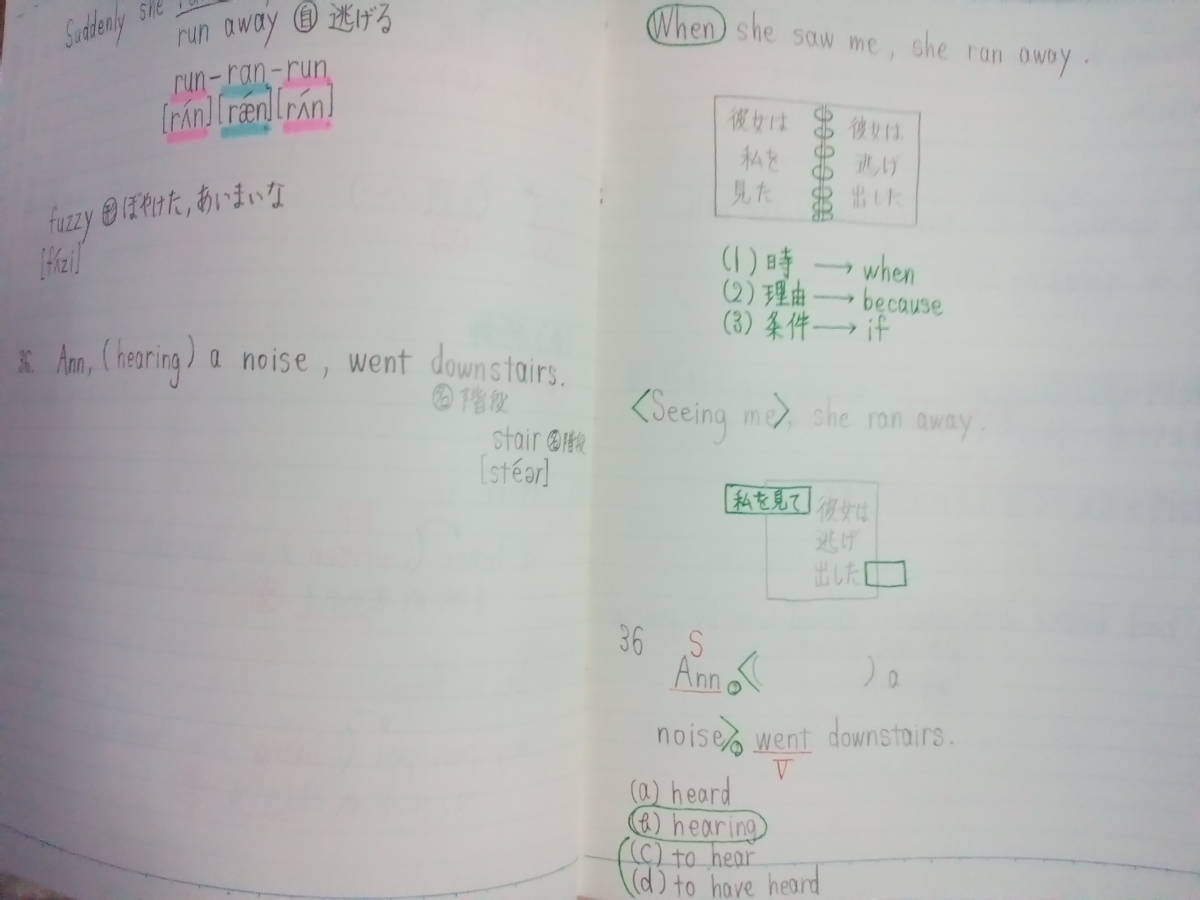 Suddenly she
run away 自 逃げる
run-ran-run
[rʌ́n][rǽn][rʌ́n]
fuzzy 形 ぼやけた, あいまいな
[fʌ́zi]
36. Ann, (hearing) a noise, went downstairs.
名 階段
stair 名 階段
[stéər]
When she saw me, she ran away.
彼女は
私を
見た
彼女は
逃げ
出した
(1) 時 → when
(2) 理由 → because
(3) 条件 → if
<Seeing me>, she ran away.
私を見て
彼女は
逃げ
出した
36 S
Ann, <( ) a
noise>, went downstairs.
V
(a) heard
(b) hearing
(c) to hear
(d) to have heard